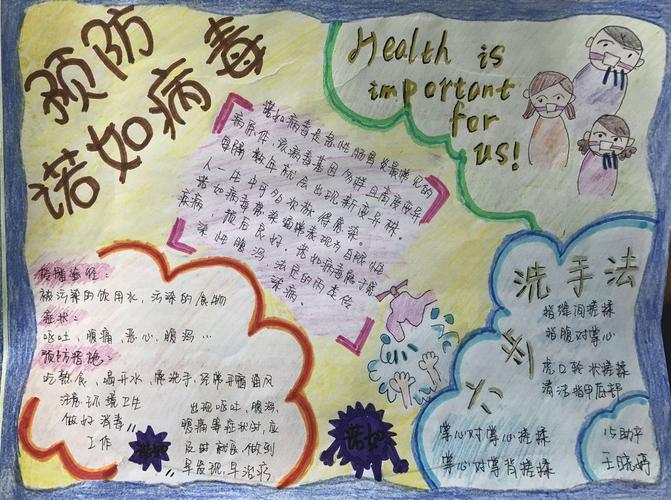 预防
诺如病毒
Health is
important
for
us!
诺如病毒是急性肠胃炎最常见的
病原体,该病毒基因多样且高度变异
每隔数年就会出现新变异株。
人一生中可多次
诺如病毒
疾病,预后良好。
染性腹泻
染病。
传播途径:
被污染的饮用水,污染的食物
症状:
呕吐、腹痛、恶心、腹泻…
预防措施:
吃熟食、喝开水、常洗手、经常开窗通风
注意环境卫生
做好消毒
工作
出现呕吐、腹泻、
腹痛等症状时,应
及时就医,做到
早发现、早治疗
诺如
诺如
洗手法
指缝间搓揉
指腹对掌心
虎口
清洁指甲底部
掌心对掌心搓揉
掌心对掌背搓揉